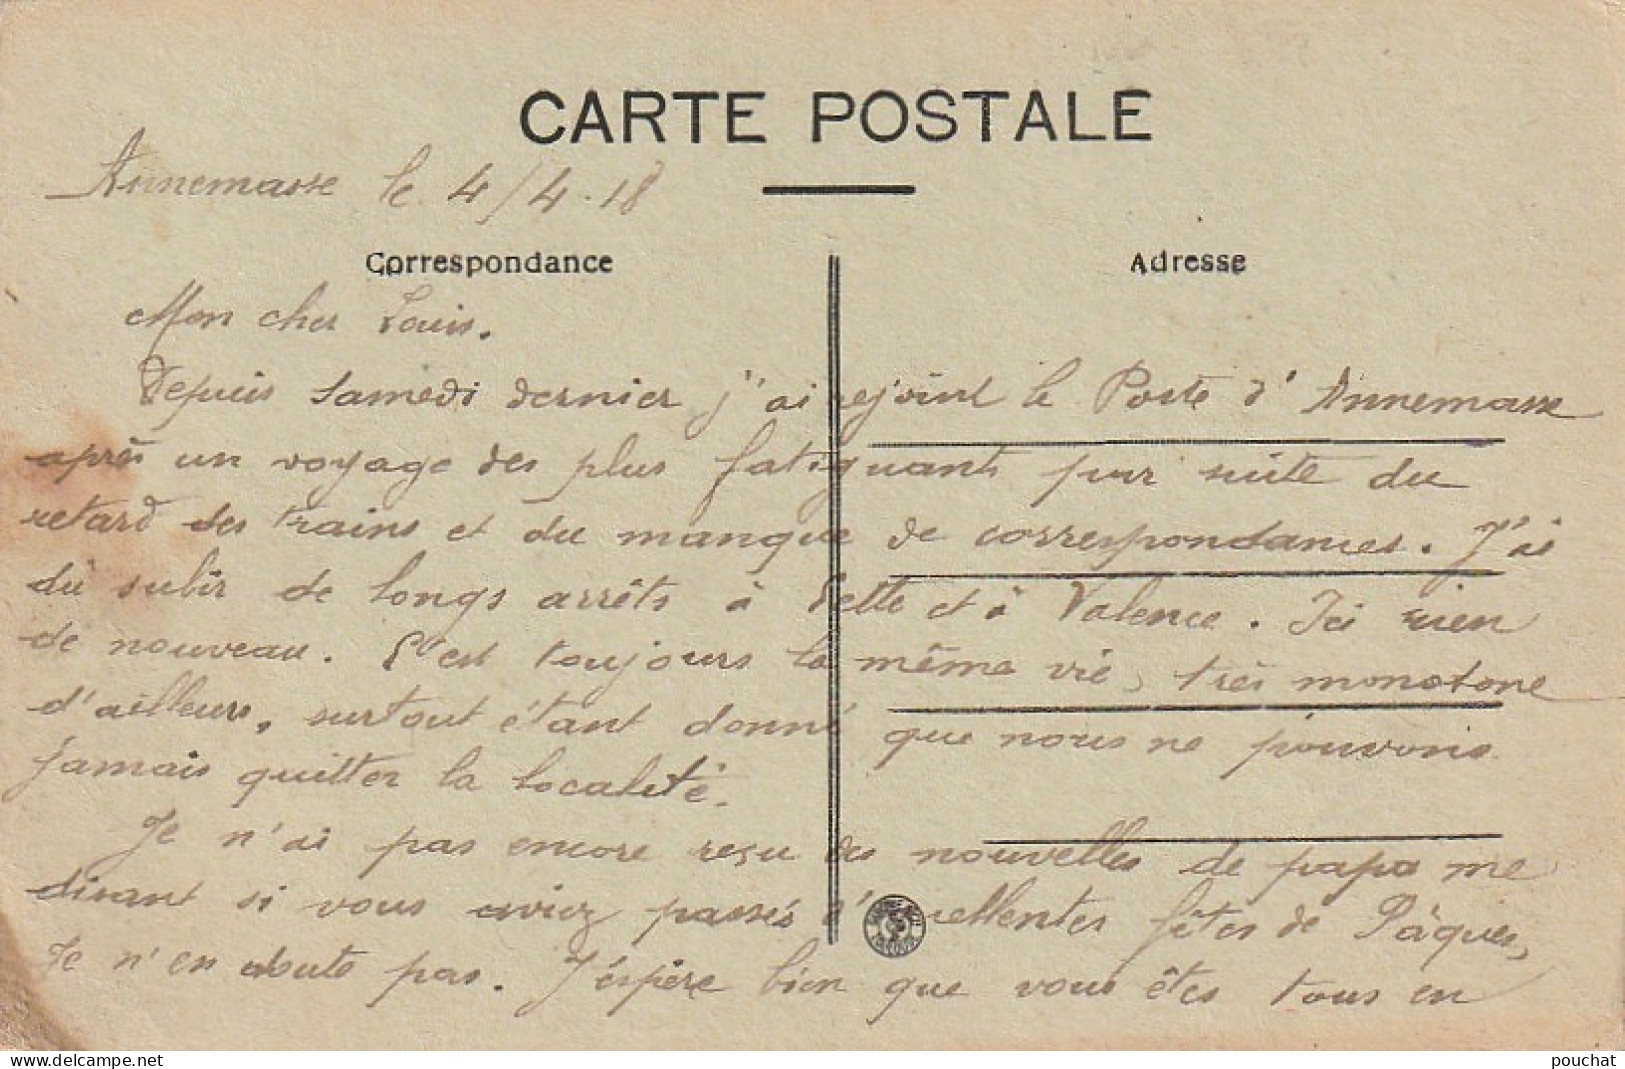 CARTE POSTALE
Annemasse le 4/4.18
Correspondance
Adresse
Mon cher Louis.
Depuis Samedi dernier j'ai rejoint le Poste d'Annemasse
après un voyage des plus fatiguants par suite du
retard des trains et du manque de correspondances. J'ai
dû subir de longs arrêts à Cette et à Valence. Ici rien
de nouveau. C'est toujours la même vie, très monotone
d'ailleurs, surtout étant donné que nous ne pouvons
jamais quitter la localité.
Je n'ai pas encore reçu des nouvelles de papa me
disant si vous aviez passés d'excellentes fêtes de Pâques,
Je n'en doute pas. J'espère bien que vous êtes tous en
delcampe.net
pouchat